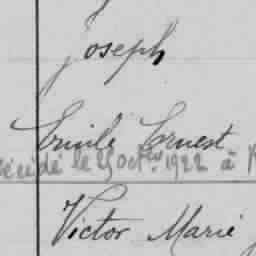 Joseph
Emile Ernest
décédé le 25 octbre 1922 à
Victor Marie